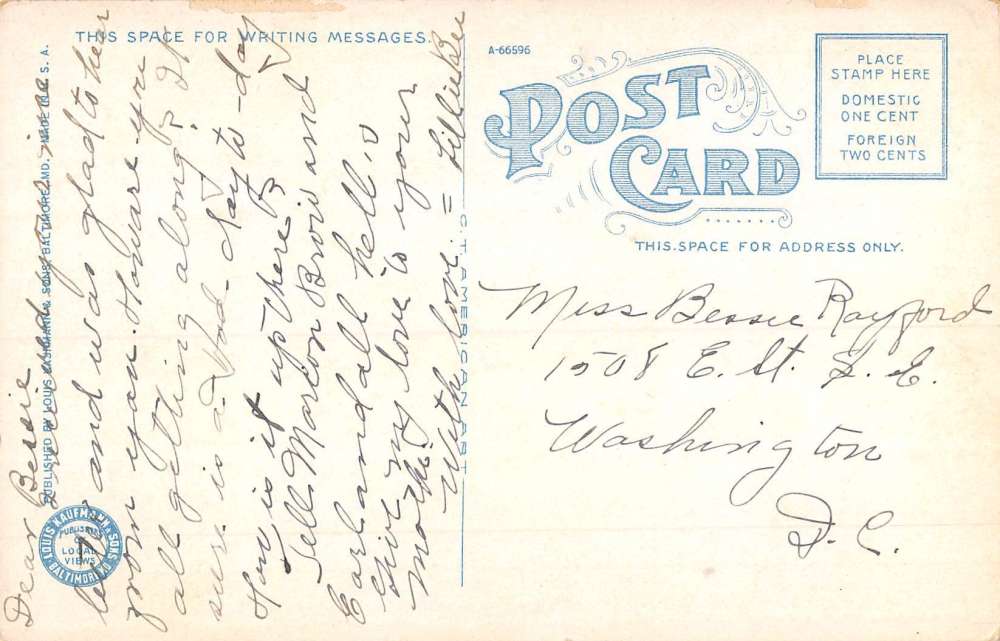 THIS SPACE FOR WRITING MESSAGES.
A-66596
POST
CARD
PLACE
STAMP HERE
DOMESTIC
ONE CENT
FOREIGN
TWO CENTS
THIS SPACE FOR ADDRESS ONLY.
PUBLISHED BY LOUIS KAUFMANN & SONS, BALTIMORE, MD. MADE IN U. S. A.
LOUIS KAUFMANN & SONS
PUBLISHERS
LOCAL
VIEWS
BALTIMORE, MD
C. T. AMERICAN ART
Dear Bessie
Received your
letter and was glad to hear
from you. How are you
all getting along? It
sure is a bad day to-day
How is it up there?
Tell Marion Brown and
Earl and all hello
Give my love to your
mother
With love = Lillie Bee
Miss Bessie Rayford
1508 E. St. S. E.
Washington
D. C.